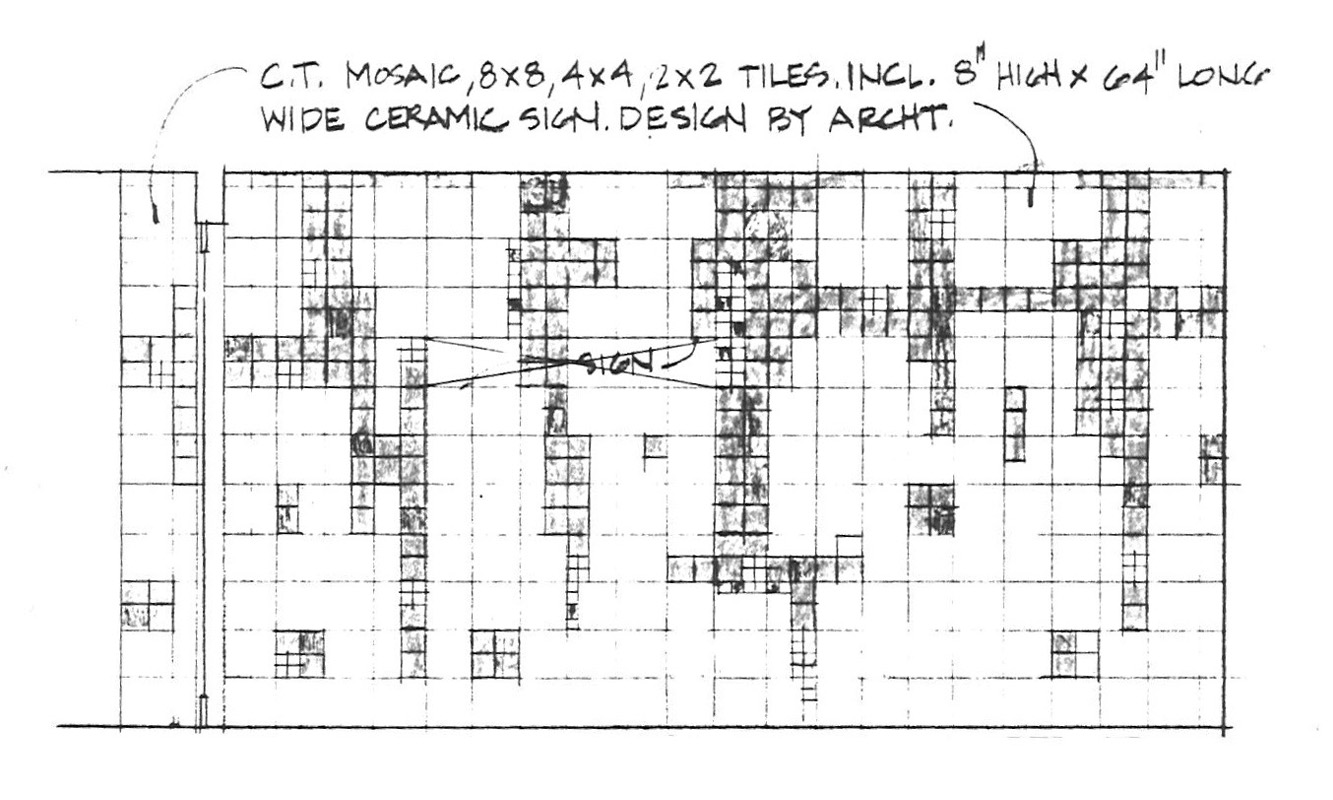 C.T. MOSAIC, 8x8, 4x4, 2x2 TILES. INCL. 8" HIGH x 64" LONG
WIDE CERAMIC SIGN. DESIGN BY ARCHT.
SIGN